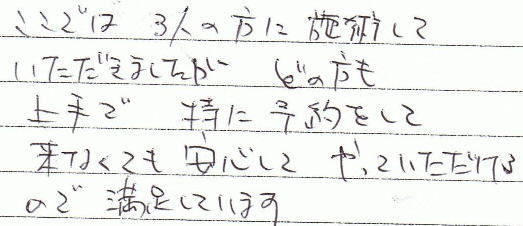 ここでは 3人の方に施術して
いただきましたが どの方も
上手で 特に予約をして
来なくても安心して やっていただける
ので満足しています